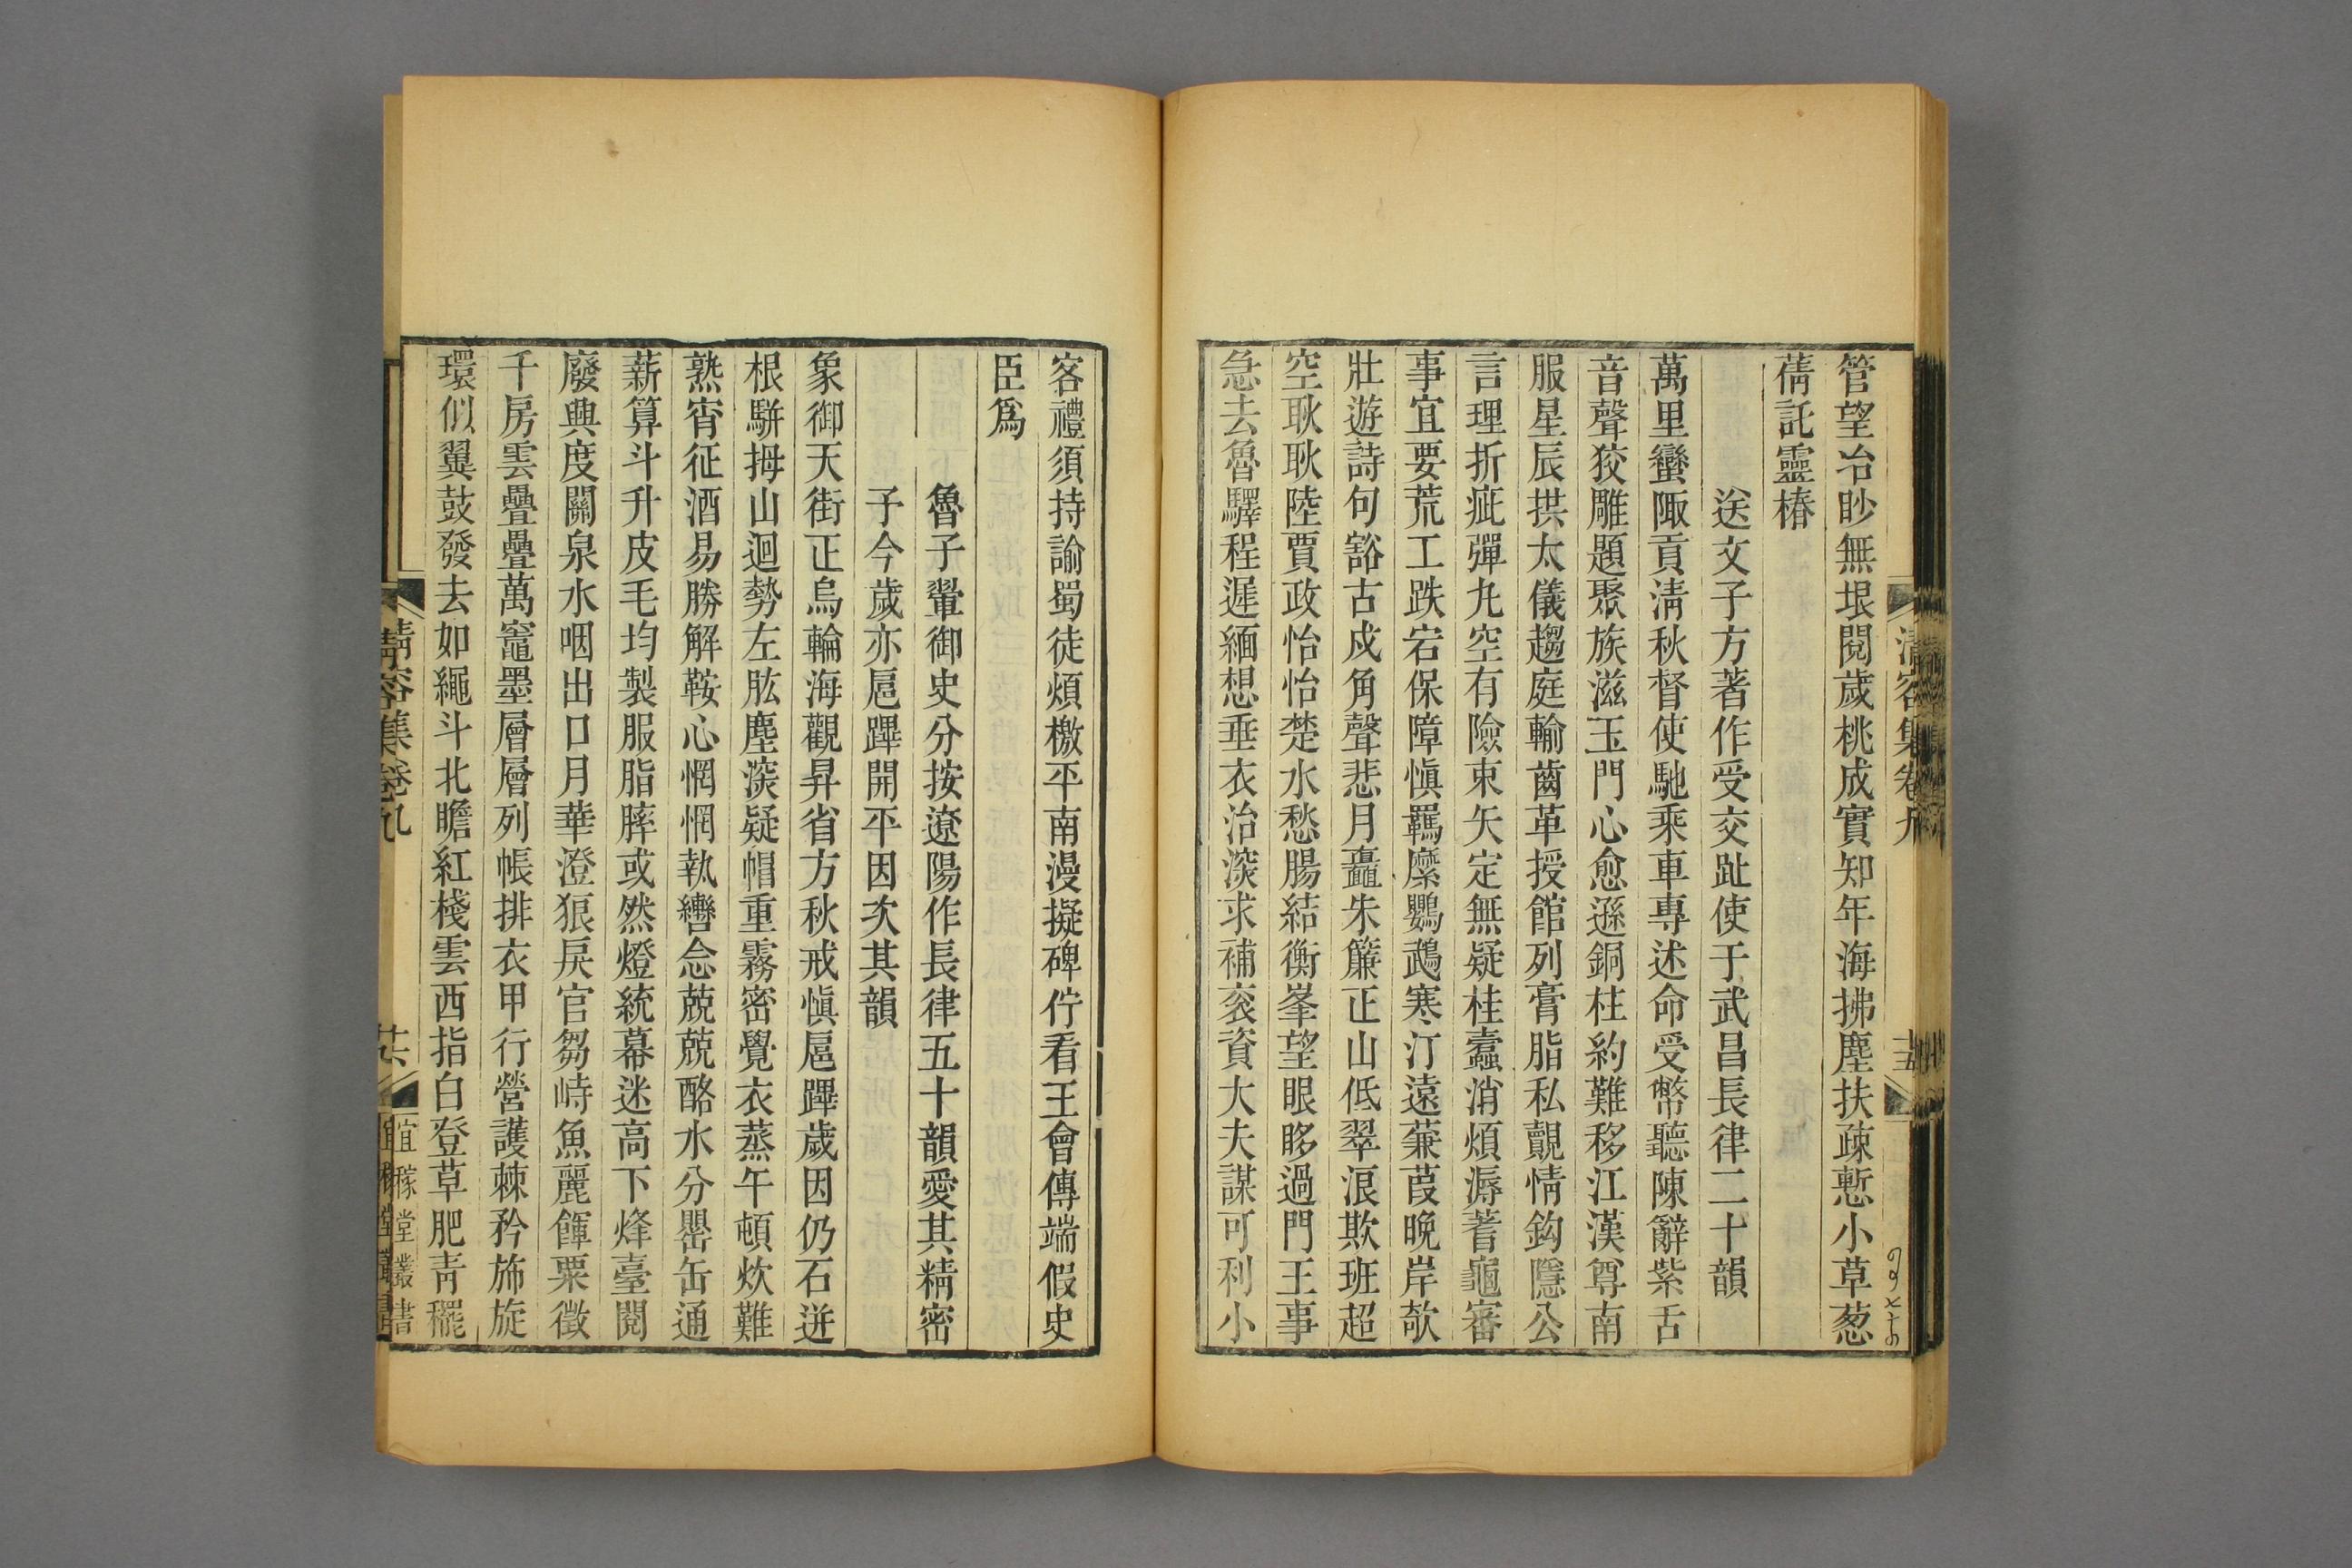 管望冶眇無垠閱歲桃成實知年海拂塵扶疎慙小草葱
蒨託靈椿
送文子方著作受交趾使于武昌長律二十韻
萬里蠻陬貢清秋督使馳乘車專述命受幣聽陳辭紫舌
音聲狡雕題聚族滋玉門心愈遜銅柱約難移江漢尊南
服星辰拱太儀趨庭輸齒革授館列膏脂私覿情鈎隱公
言理折疵彈丸空有險束矢定無疑桂蠹消煩溽蓍龜審
事宜要荒工跌宕保障愼羈縻鸚鵡寒汀遠蒹葭晚岸欹
壯遊詩句豁古戍角聲悲月矗朱簾正山低翠浪欺班超
空耿耿陸賈政怡怡楚水愁腸結衡峯望眼眵過門王事
急去魯驛程遲緬想垂衣治深求補衮資大夫謀可利小
清容集卷九
十五
客禮須持諭蜀徒煩檄平南漫擬碑佇看王會傳端假史
臣爲
魯子翬御史分按遼陽作長律五十韻愛其精密
子今歲亦扈蹕開平因次其韻
象御天街正烏輪海觀昇省方秋戒愼扈蹕歲因仍石迸
根駢拇山迴勢左肱塵深疑帽重霧密覺衣蒸午頓炊難
熟宵征酒易勝解鞍心惘惘執轡念兢兢酪水分罌缶通
薪算斗升皮毛均製服脂膟或然燈統幕迷高下烽臺閱
廢興度關泉水咽出口月華澄狼戾官芻峙魚麗餫粟徵
千房雲疊疊萬竈墨層層列帳排衣甲行營護棘矜斾旋
環似翼鼓發去如繩斗北瞻紅棧雲西指白登草肥靑䆉
清容集卷九
廿六
宜稼堂叢書